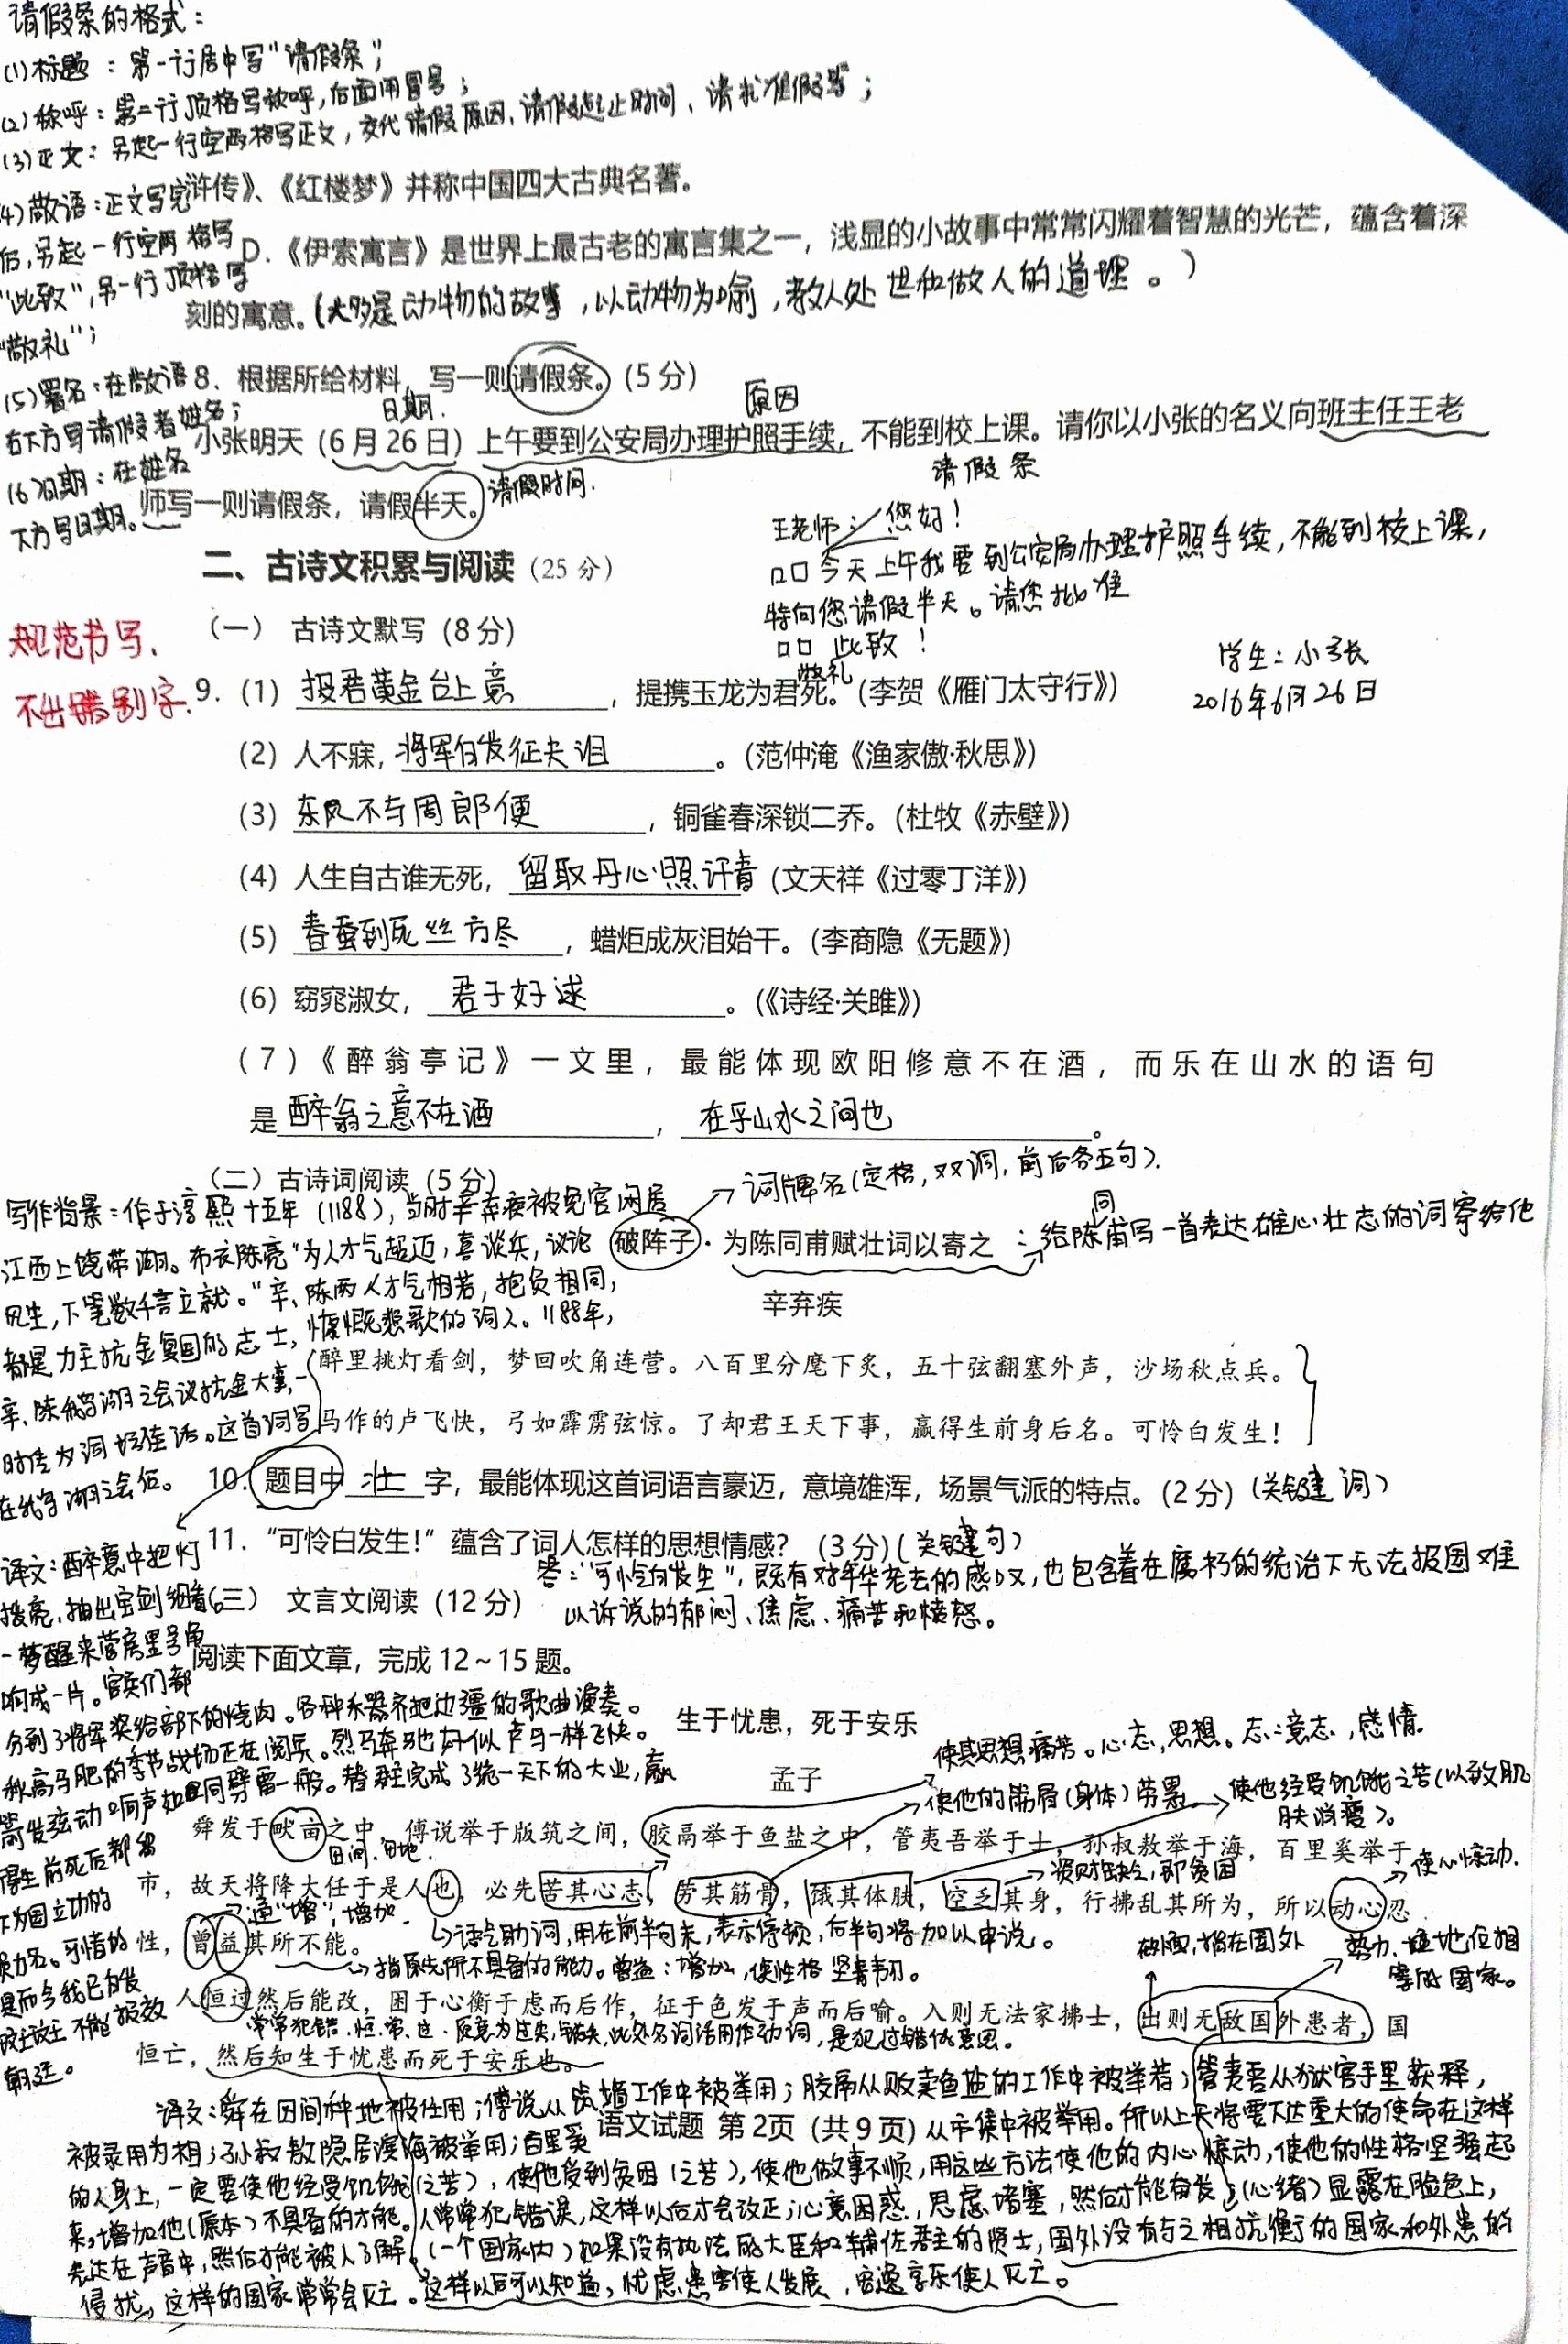 请假条的格式：
(1)标题：第一行居中写“请假条”；
(2)称呼：第二行顶格写称呼，后面用冒号；
(3)正文：另起一行空两格写正文，交代请假原因、请假起止时间、请求准假等；
(4)敬语：正文写完
后，另起一行空两格写
“此致”，另一行顶格写
“敬礼”；
(5)署名：在敬语
右下方写请假者姓名；
(6)日期：在姓名
下方写日期。
浒传》、《红楼梦》并称中国四大古典名著。
D.《伊索寓言》是世界上最古老的寓言集之一，浅显的小故事中常常闪耀着智慧的光芒，蕴含着深
刻的寓意。(大多是动物的故事，以动物为喻，教人处世和做人的道理。)
8. 根据所给材料，写一则请假条。(5分)
日期. 原因
小张明天（6月26日）上午要到公安局办理护照手续，不能到校上课。请你以小张的名义向班主任王老
师写一则请假条，请假半天。 请假时间.
请假条
王老师： 您好！
口口今天上午我要到公安局办理护照手续，不能到校上课，
特向您请假半天。请您批准
口口 此致！
敬礼
学生：小张
2016年6月26日
二、古诗文积累与阅读（25分）
规范书写、
不出错别字.
（一） 古诗文默写（8分）
9.（1）报君黄金台上意，提携玉龙为君死。(李贺《雁门太守行》)
（2）人不寐，将军白发征夫泪。(范仲淹《渔家傲·秋思》)
（3）东风不与周郎便，铜雀春深锁二乔。(杜牧《赤壁》)
（4）人生自古谁无死，留取丹心照汗青 (文天祥《过零丁洋》)
（5）春蚕到死丝方尽，蜡炬成灰泪始干。(李商隐《无题》)
（6）窈窕淑女，君子好逑。(《诗经·关雎》)
（7）《醉翁亭记》一文里，最能体现欧阳修意不在酒，而乐在山水的语句
是醉翁之意不在酒，在乎山水之间也。
（二）古诗词阅读（5分）
词牌名(定格，双调，前后各五句).
破阵子·为陈同甫赋壮词以寄之 ：给陈同甫写一首表达雄心壮志的词寄给他
辛弃疾
写作背景：作于淳熙十五年（1188），当时辛弃疾被免官闲居
江西上饶带湖。布衣陈亮“为人才气超迈，喜谈兵，议论
风生，下笔数千言立就。”辛、陈两人才气相若，抱负相同，
都是力主抗金复国的志士，慷慨悲歌的词人。1188年，
辛、陈鹅湖之会议抗金大事，一
时传为词坛佳话。这首词写
在鹅湖之会后。
醉里挑灯看剑，梦回吹角连营。八百里分麾下炙，五十弦翻塞外声，沙场秋点兵。
马作的卢飞快，弓如霹雳弦惊。了却君王天下事，赢得生前身后名。可怜白发生！
10. 题目中 壮 字，最能体现这首词语言豪迈，意境雄浑，场景气派的特点。(2分)（关键词）
11.“可怜白发生！”蕴含了词人怎样的思想情感？（3分)(关键句)
答：“可怜白发生”，既有对年华老去的感叹，也包含着在腐朽的统治下无法报国难
以诉说的郁闷、焦虑、痛苦和愤怒。
译文：醉意中把灯
拨亮，抽出宝剑细看，
一梦醒来营房里号角
响成一片。官兵们都
分到了将军奖给部下的烤肉。各种乐器齐把边疆的歌曲演奏。
秋高马肥的季节战场正在阅兵。烈马奔驰好似卢马一样飞快。
箭发弦动响声如同霹雷一般。替君王完成了统一天下的大业，赢
得生前死后都留
下为国立功的
是而今我已白发
不能报效
朝廷。
（三） 文言文阅读（12分）
阅读下面文章，完成12～15题。
生于忧患，死于安乐
孟子
使其思想痛苦。心志，思想。志：意志，感情.
使他的筋骨(身体)劳累
使他经受饥饿之苦(以致肌
肤消瘦)。
舜发于畎亩之中，傅说举于版筑之间，胶鬲举于鱼盐之中，管夷吾举于士，孙叔敖举于海，百里奚举于
田间.田地.
资财缺乏，即贫困
使心惊动.
市，故天将降大任于是人也，必先苦其心志，劳其筋骨，饿其体肤，空乏其身，行拂乱其所为，所以动心忍
通“增”，增加.
语气助词，用在前半句末，表示停顿，后半句将加以申说。
性，曾益其所不能。
指原先所不具备的能力。曾益：增加，使性格坚韧.
在外面，指在国外
势力、地位相
等的国家。
人恒过然后能改，困于心衡于虑而后作，征于色发于声而后喻。入则无法家拂士，出则无敌国外患者，国
常常犯错.恒.常.过.原意为过失，错失，此处名词活用作动词，是犯过错的意思。
恒亡，然后知生于忧患而死于安乐也。
译文：舜在田间种地被任用；傅说从筑墙工作中被举用；胶鬲从贩卖鱼盐的工作中被举荐；管夷吾从狱官手里获释，
被录用为相；孙叔敖隐居滨海被举用；百里奚
语文试题 第2页（共9页）
从市集中被举用。所以上天将要下达重大的使命在这样
的人身上，一定要使他经受饥饿(之苦)，使他受到贫困(之苦)，使他做事不顺，用这些方法使他的内心惊动，使他的性格坚强起
来，增加他(原本)不具备的才能。人常常犯错误，这样以后才会改正；心意困惑，思虑堵塞，然后才能奋发；(心绪)显露在脸色上，
表达在声音中，然后才能被人了解。(一个国家内)如果没有执法的大臣和辅佐君主的贤士，国外没有与之相抗衡的国家和外患的
侵扰，这样的国家常常会灭亡。这样以后可以知道，忧虑患害使人发展，安逸享乐使人灭亡。